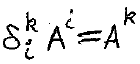 δᵢᵏ Aⁱ = Aᵏ